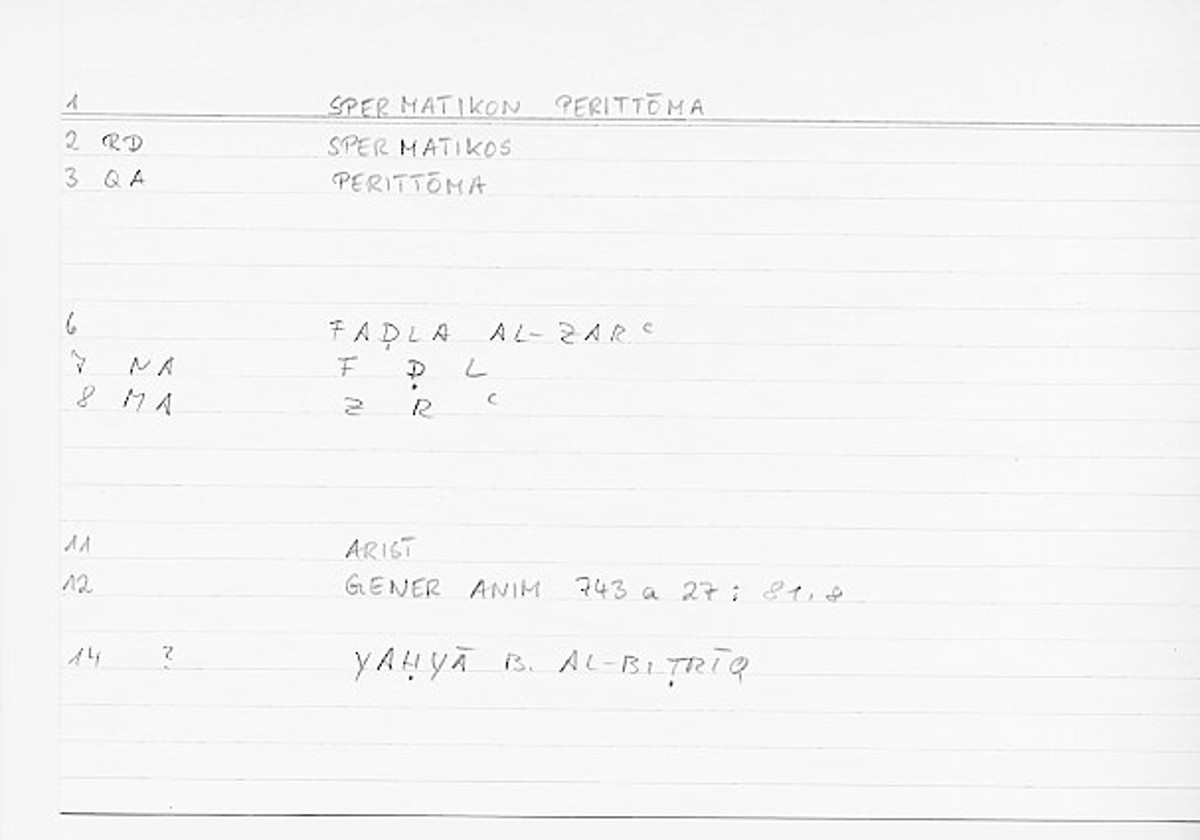 1 SPERMATIKON PERITTŌMA
2 RD SPERMATIKOS
3 QA PERITTŌMA
6 FAḌLA AL-ZARᶜ
7 NA F Ḍ L
8 MA Z R ᶜ
11 ARIST
12 GENER ANIM 743 a 27 : 81,8
14 ? YAḤYĀ B. AL-BIṬRĪQ